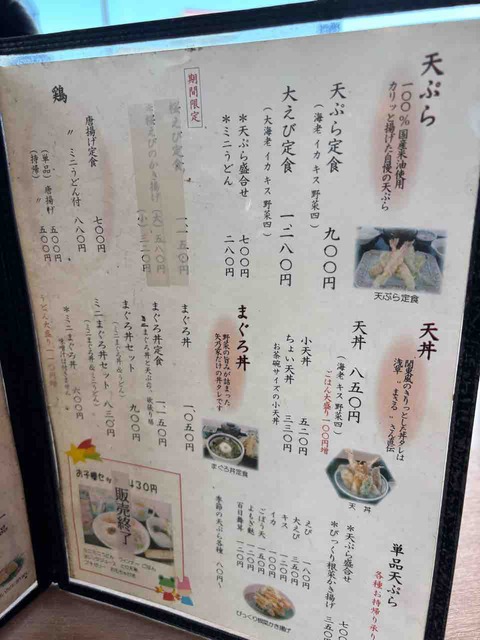 天ぷら
100%国産米油使用
カリッと揚げた自慢の天ぷら
天ぷら定食 九〇〇円
(海老 イカ キス 野菜四)
大えび定食 一、二八〇円
(大海老 イカ キス 野菜四)
*天ぷら盛合せ 七〇〇円
*ミニうどん 二八〇円
天ぷら定食
期間限定
桜えび定食 一、一五〇円
*桜えびのかき揚げ (大)五八〇円
(小)三二〇円
鶏
唐揚げ定食 七〇〇円
〃 ミニうどん付 八八〇円
(単品)唐揚げ 五〇〇円
(持帰) 五〇〇円
天丼
関東風のきりっとした丼タレは
浅草“まさる”さん直伝
天丼 八五〇円
(海老 キス 野菜四)
ごはん大盛り一〇〇円増
小天丼 五二〇円
ちょい天丼 三三〇円
お茶碗サイズの小天丼
天丼
まぐろ丼
野菜の旨みが詰まった
矢乃家だけの丼タレです
まぐろ丼定食
まぐろ丼 一、〇五〇円
まぐろ丼定食 一、一五〇円
まぐろ丼セット 九〇〇円
ミニまぐろ丼セット 八三〇円
*ミニまぐろ丼 六〇〇円
うどん大盛り一一〇円増
お子様セット 430円
販売終了
単品天ぷら
各種お持帰り承
*天ぷら盛合せ
*びっくり根菜かき揚げ 三五〇
えび 一八〇円
大えび 三五〇円
キス
イカ 一〇〇円
ごぼう天 一五〇円
よもぎ麩 一二〇円
旨日舞茸 一二〇円
季節の天ぷら各種 八〇円〜
びっくり根菜かき揚げ